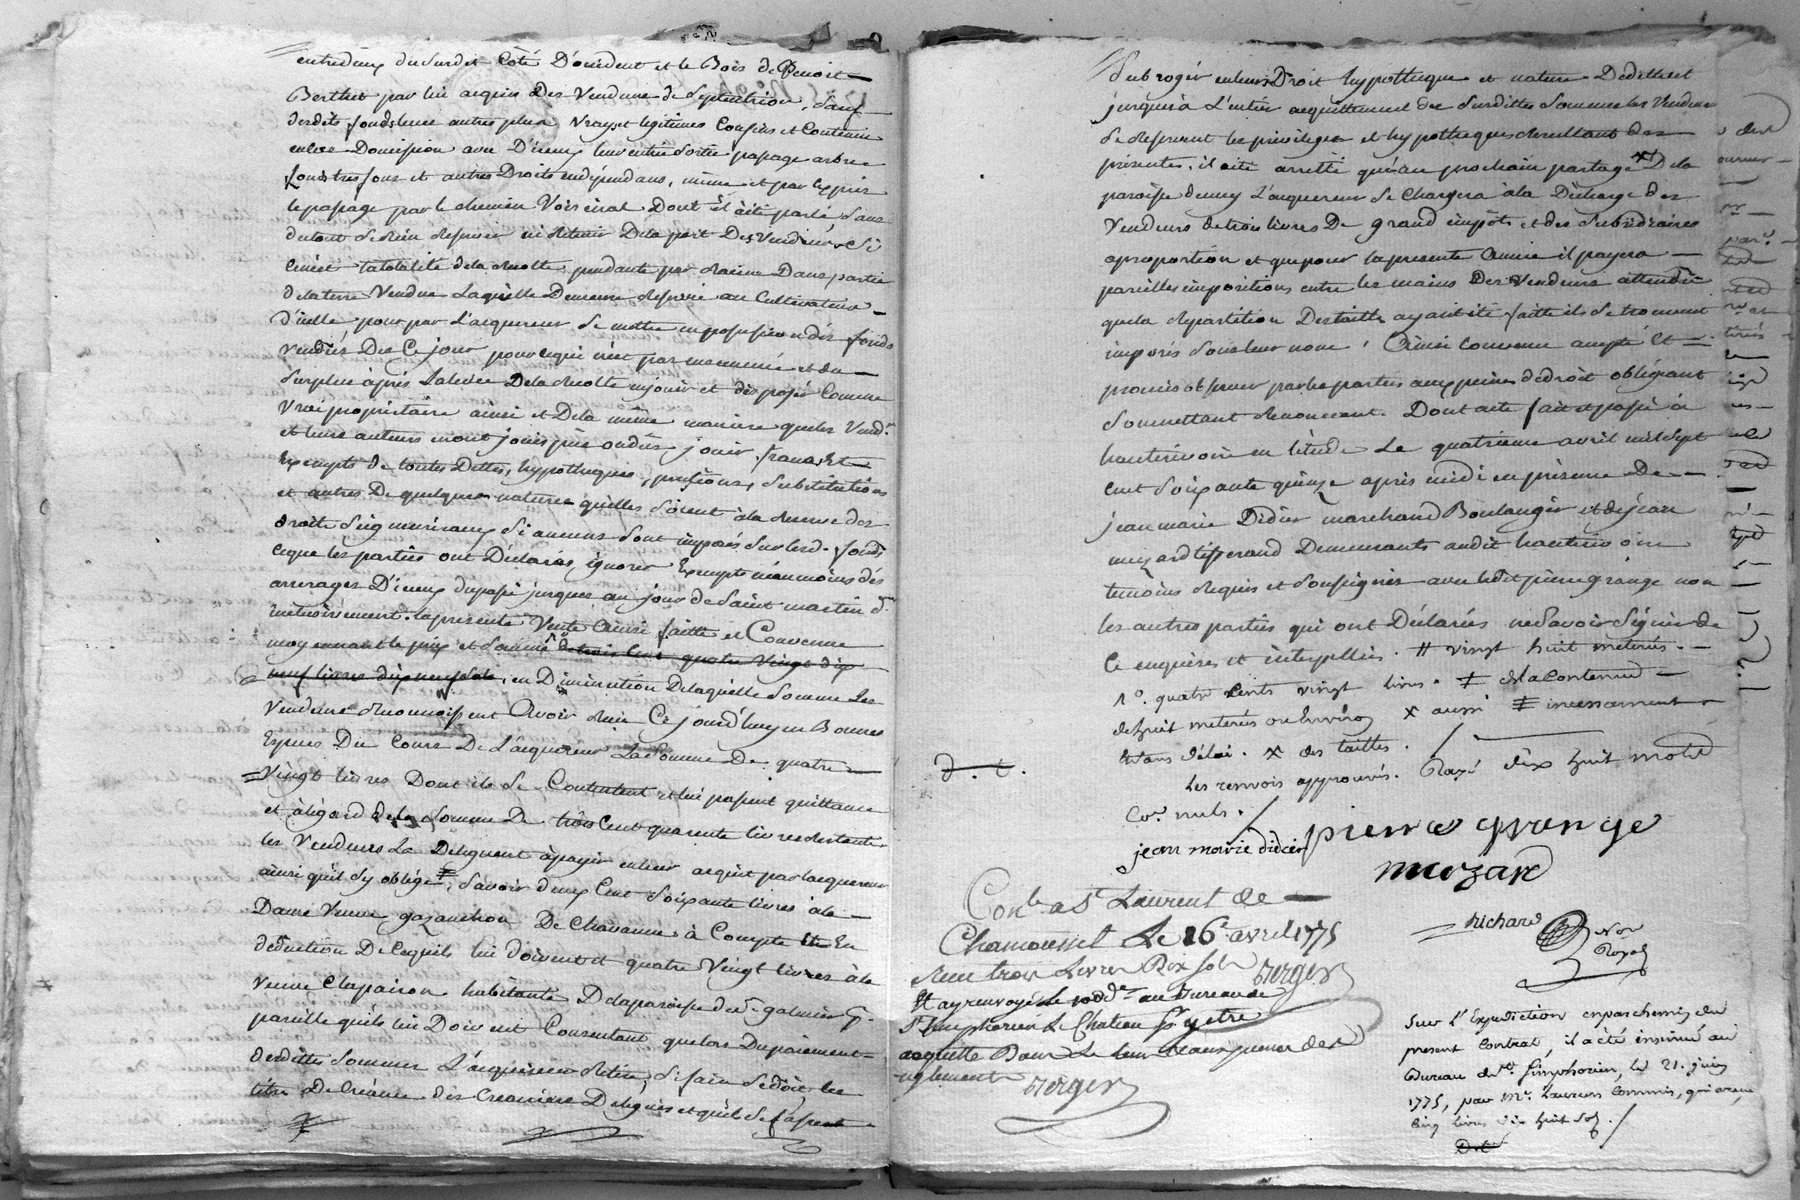 entredeux du Surdet Côté D'occident et le Bois de Benoit
Berthet par lui acquis des Vendeurs de Septentrion, Sauf
desdits fonds leurs autres plus vrays et légitimes Confins et Contenue
avec D'iceux leur entrée Sortie passage arbres
fonds tresfonds et autres Droits en dépendans, même et par exprès
le passage par le chemin Voisinal Dont il a été parlé Sans
du tout Se Rien Réserver ni Retenir De la part Des Vendeurs Si
ce n'est la totalité de la Récolte pendante par Racine Dans partie
de la terre Vendue Laquelle Demeure Réservée au Cultivateur
D'icelle pour par L'acquéreur Se mettre en possession des fonds
Vendus Dès Ce jour pour ce qui n'est pas ensemencé et du
Surplus après La levée De la Récolte en jouir et disposer Comme
Vrai propriétaire ainsi et De la même manière que les Vend.rs
et leurs auteurs en ont joui pu ou dû jouir, francs Et
Exempts de toutes Dettes, hypothèques, pensions, Substitutions
et autres De quelques natures qu'elles Soient à la Réserve des
droits Seigneuriaux Si aucuns Sont imposés Sur lesd. fonds
ce que les parties ont Déclaré ignorer Exempts néanmoins des
arrérages D'iceux du passé jusques au jour de Saint martin d.r
la présente Vente Ainsi faitte et Convenue
moyennant le prix et Somme de trois Cent quatre Vingt dix
neuf livres dix neuf Sols, en Diminution De laquelle Somme Les
Vendeurs Reconnoissent Avoir Reçu Ce jourd'huy en Bonnes
Espèces Du Cours De L'acquéreur La Somme De quatre
Vingt livres Dont ils Se Contentent et lui passent quittance
et à l'égard de la Somme De trois Cent quarante livres Restantes
les Vendeurs La Délèguent à payer en leur acquit par l'acquéreur
ainsi qu'il S'y oblige, Savoir deux Cent Soixante livres à la
Dame Veuve gazanchon De Chavanne à Compte Et En
déduction De Ce qu'ils lui doivent et quatre Vingt livres à la
Veuve Clapairon habitante De la paroisse de St. galmier p.r
pareille qu'ils lui Doivent Consentant que lors Du paiement
desdittes Sommes L'acquéreur Retire, Se fasse Céder les
titres De Créance des Créanciers Délégués et qu'il Se fasse
Subroger en leurs Droit hypothèque et nature De dette et
jusqu'à L'entier acquittement des Surdittes Sommes les Vendeurs
Se Réservent les privilèges et hypothèques Résultant des
présentes. il a été arrêté qu'au prochain partage × De la
paroisse L'acquéreur Se Chargera à la Décharge des
Vendeurs de trois livres De grand impôt et des Subsidiaires
à proportion et que pour la présente Année il payera
pareilles impositions entre les mains Des Vendeurs attendu
que la Répartition Des tailles ayant été faitte ils Se trouvent
imposés Sous leur nom. Ainsi Convenu accepté Et
promis observer par les parties aux peines de droit obligeant
Soumettant Renonceant. Dont acte fait et passé à
hauterivoire en l'étude Le quatrième avril mil Sept
Cent Soixante quinze après midi en présence De
jean marie Didier marchand Boulanger et de jean
muzard tisserand Demeurants audit hauterivoire
témoins Requis et Soussignés avec ledit pierre grange non
les autres parties qui ont Déclarés ne Savoir Signer de
Ce enquises et interpellées. # vingt huit meterés.
1º. quatre cents vingt livres. ‡ de la contenue
de huit meterés ou Environ × aussi ‡ incessamment
et sans délai. × des tailles. /
les renvois approuvés. Rayé dix huit mots
Co.e nuls. /
d. t.
jean marie didier pierre grange
muzard
Richard
Not
Royal
Con.lé a St Laurent de
Chamousset Le 16e. avril 1775
Reçu trois Livres Dix Sols Verger
Et ay renvoyé Le au Bureau de
St Simphorien Le Chateau
acquitté Dans Le tems
reglement Verger
Sur l'Expedition en parchemin du
present Contrat, il a été insinué au
Bureau de St. Simphorien, le 21. juin
1775, par Mr. Laurens Commis, qui a reçu
Cinq livres dix huit sols. /